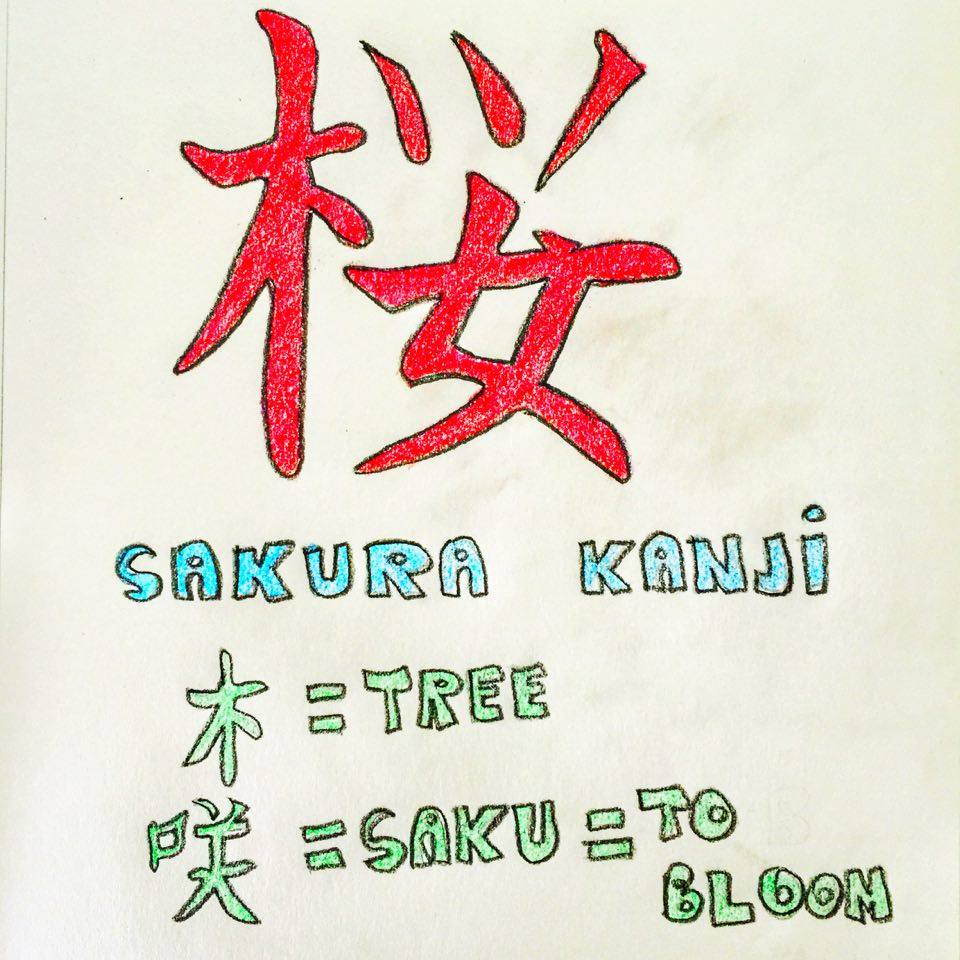 桜
SAKURA KANJi
木 = TREE
咲 = SAKU = TO
BLOOM